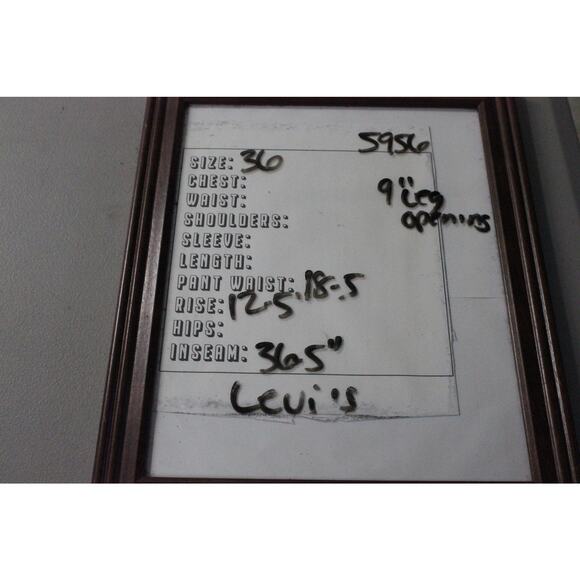 5956
SIZE: 36
CHEST:
WAIST:
9" Leg
opening
SHOULDERS:
SLEEVE:
LENGTH:
PANT WAIST: 18.5
RISE: 12.5
HIPS:
INSEAM: 36.5"
Levi's